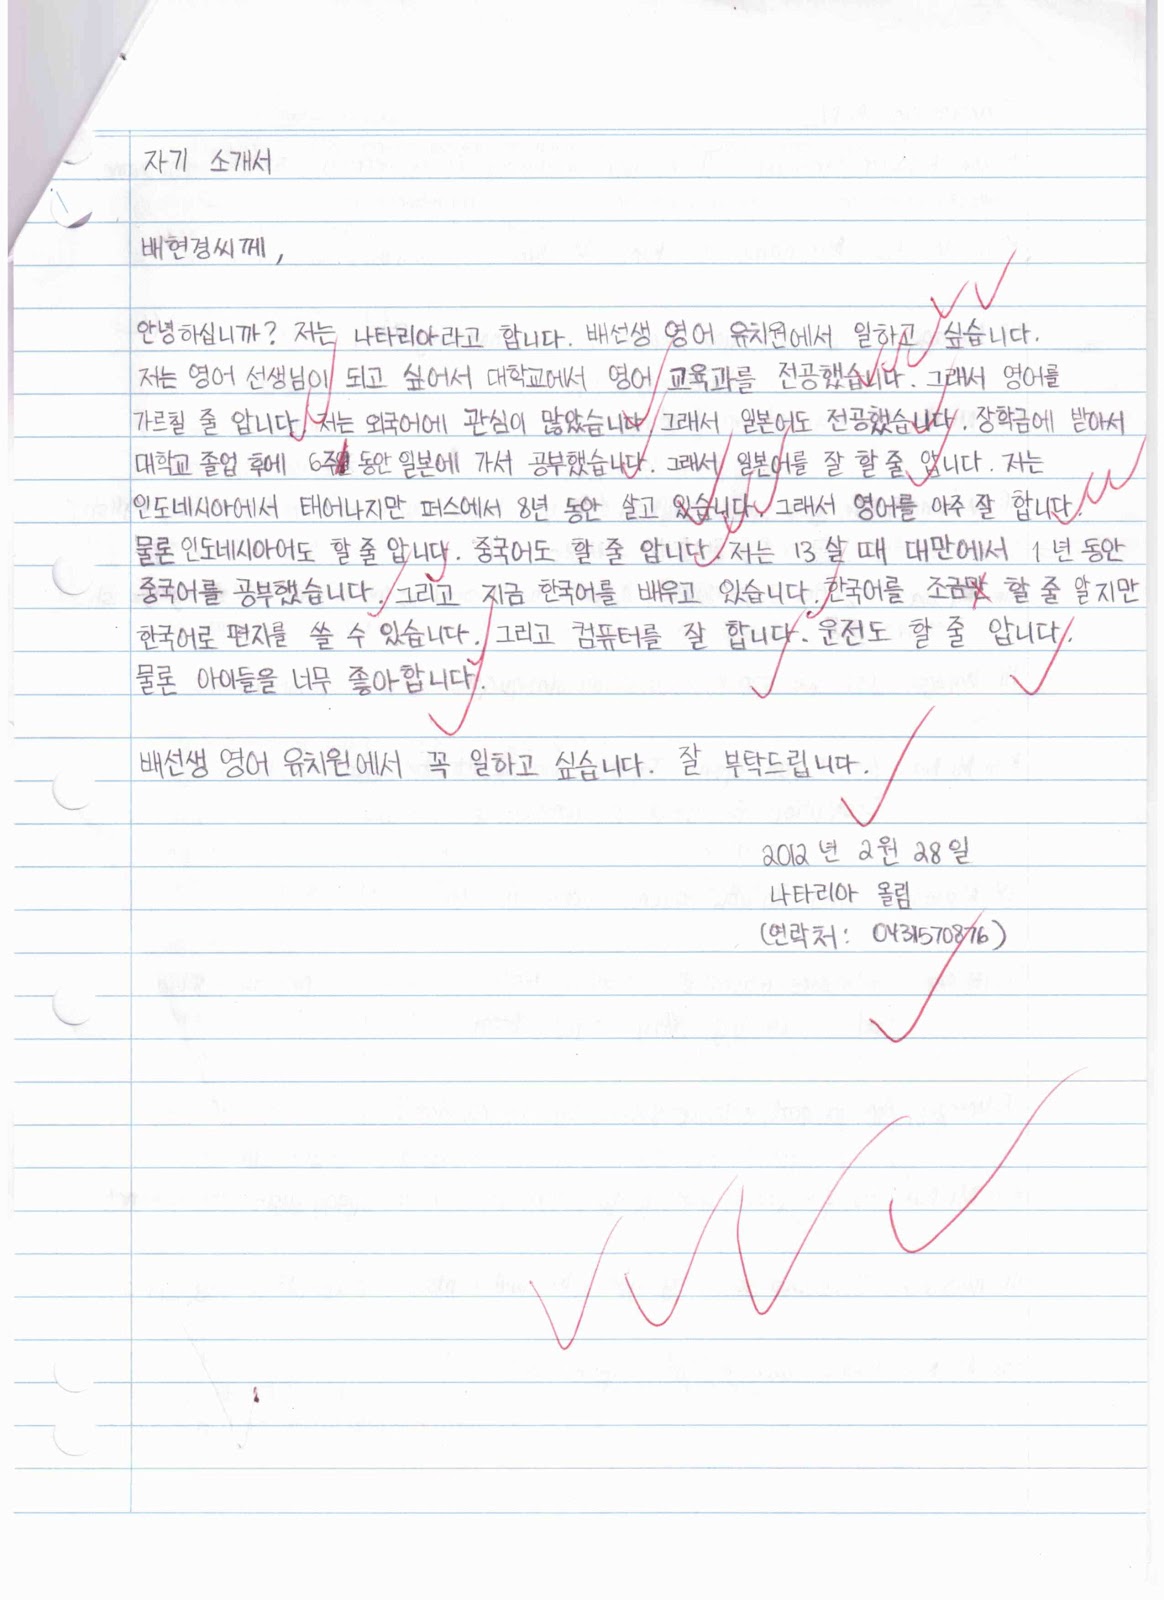 자기 소개서
배현경씨께,
안녕하십니까? 저는 나타리아라고 합니다. 배선생 영어 유치원에서 일하고 싶습니다.
저는 영어 선생님이 되고 싶어서 대학교에서 영어 교육과를 전공했습니다. 그래서 영어를
가르칠 줄 압니다. 저는 외국어에 관심이 많았습니다. 그래서 일본어도 전공했습니다. 장학금에 받아서
대학교 졸업 후에 6주 동안 일본에 가서 공부했습니다. 그래서 일본어를 잘 할 줄 압니다. 저는
인도네시아에서 태어나지만 퍼스에서 8년 동안 살고 있습니다. 그래서 영어를 아주 잘 합니다.
물론 인도네시아어도 할 줄 압니다. 중국어도 할 줄 압니다. 저는 13살 때 대만에서 1년 동안
중국어를 공부했습니다. 그리고 지금 한국어를 배우고 있습니다. 한국어를 조금 할 줄 알지만
한국어로 편지를 쓸 수 있습니다. 그리고 컴퓨터를 잘 합니다. 운전도 할 줄 압니다.
물론 아이들을 너무 좋아합니다.
배선생 영어 유치원에서 꼭 일하고 싶습니다. 잘 부탁드립니다.
2012년 2월 28일
나타리아 올림
(연락처: 0431570876)